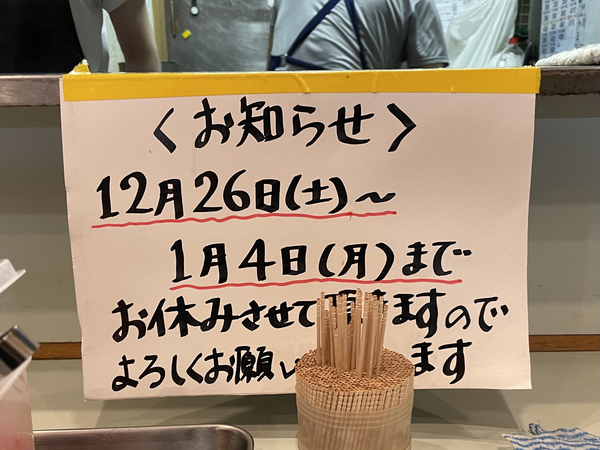 〈お知らせ〉
12月26日(土)〜
1月4日(月)まで
お休みさせて頂きますので
よろしくお願い ます